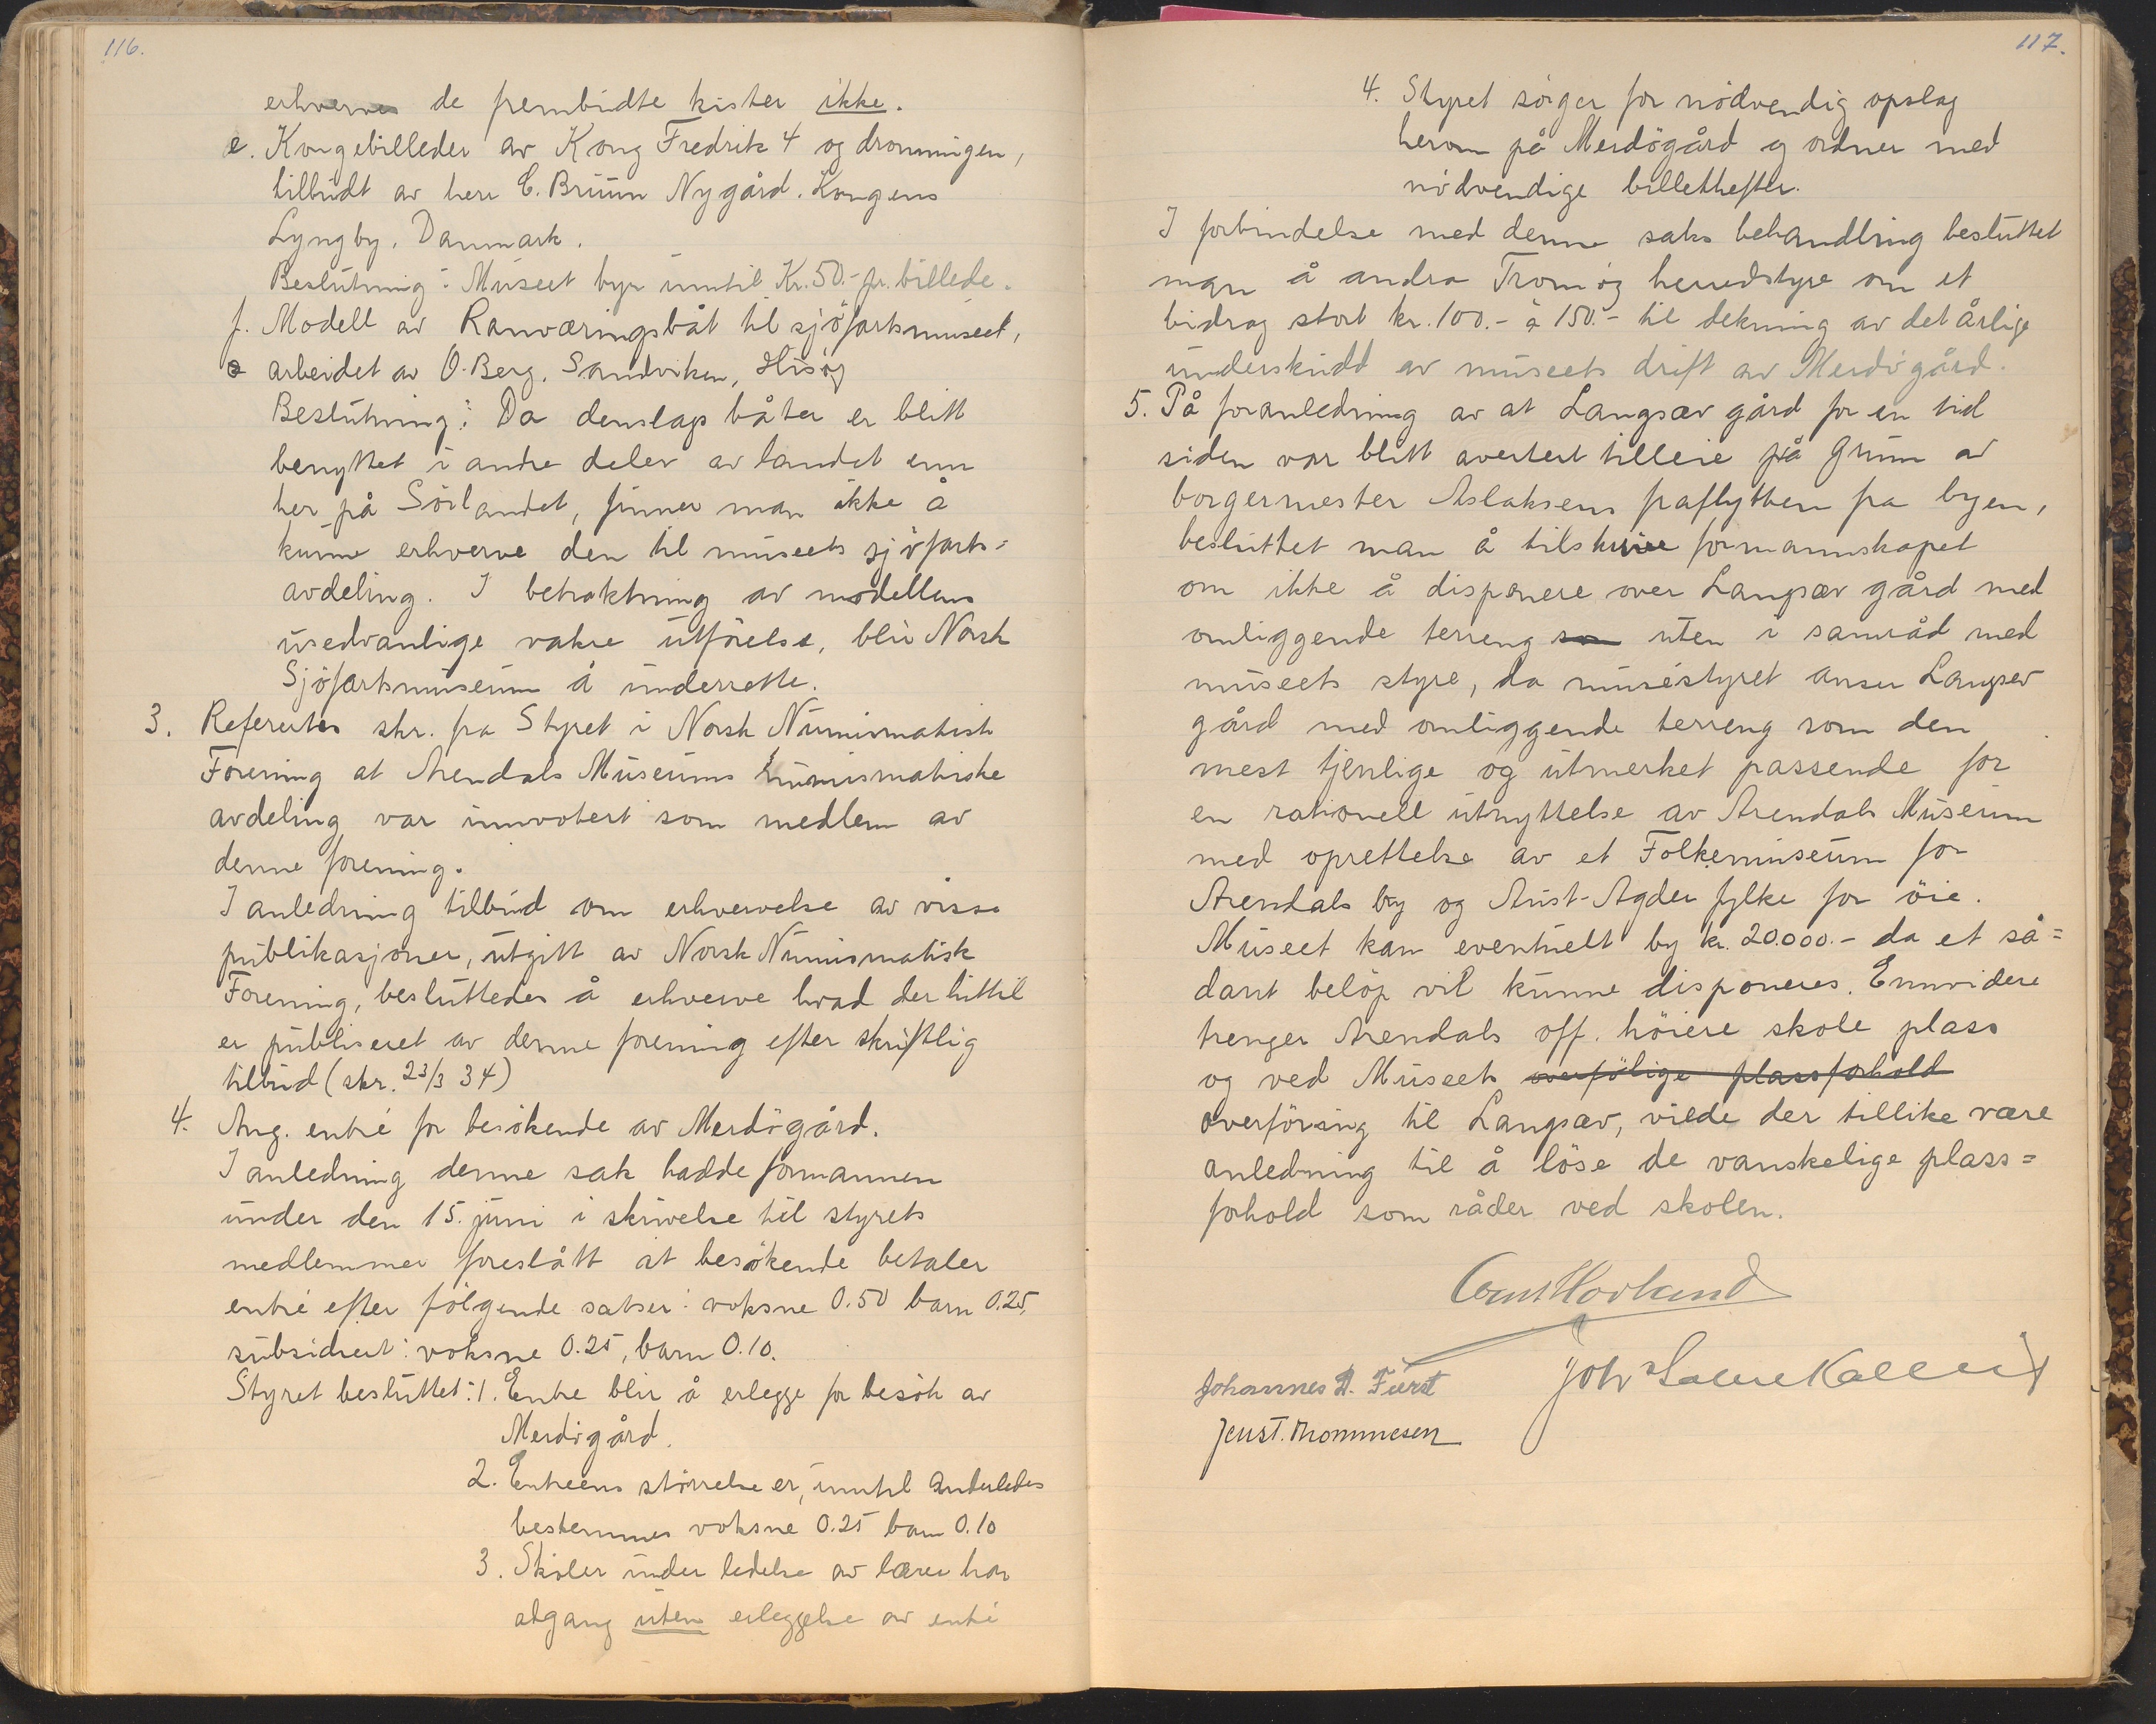 116.
erhverves de frembudte kister ikke.
e. Kongebilleder av Kong Fredrik 4 og dronningen,
tilbudt av herr C. Bruun Nygård. Kongens
Lyngby. Danmark.
Beslutning: Museet byr inntil Kr. 50.- pr. billede.
f. Modell av Ranværingsbåt til sjöfartsmuseet,
arbeidet av O. Berg, Sandviken, Hisöy
Beslutning: Da denslags båter er blitt
benyttet i andre deler av landet enn
her på Sörlandet, finner man ikke å
kunne erhverve den til museets sjöfarts=
avdeling. I betraktning av modellens
usedvanlige vakre utförelse, blir Norsk
Sjöfartsmuseum å underrette.
3. Refertes skr. fra Styret i Norsk Numismatisk
Forening at Arendals Museums numismatiske
avdeling var innvotert som medlem av
denne forening.
I anledning tilbud om erhvervelse av visse
publikasjoner, utgitt av Norsk Numismatisk
Forening, besluttedes å erhverve hvad der hittil
er publiseret av denne forening efter skriftlig
tilbud (skr. 23/3 34)
4. Ang. entré for besökende av Merdögård.
I anledning denne sak hadde formannen
under den 15. juni i skrivelse til styrets
medlemmer foreslått at besökende betaler
entré efter fölgende satser: voksne 0.50 barn 0.25,
subsidiert: voksne 0.25, barn 0.10.
Styret besluttet: 1. Entre blir å erlegge for besök av
Merdögård.
2. Entreens störrelse er, inntil anderledes
bestemmes voksne 0.25 barn 0.10
3. Skoler under ledelse av lærer har
adgang uten erleggelse av entré
117.
4. Styret sörger for nödvendig opslag
herom på Merdögård og ordner med
nödvendige billethefter.
I forbindelse med denne saks behandling besluttet
man å andra Tromöy herredstyre om et
bidrag stort kr. 100.- à 150.- til dekning av det årlige
underskudd av museets drift av Merdögård.
5. På foranledning av at Langsæv gård for en tid
siden var blitt avertert tilleie på grunn av
borgermester Aslaksens fraflytten fra byen,
besluttet man å tilskrive formannskapet
om ikke å disponere over Langsæv gård med
omliggende terreng som uten i samråd med
museets styre, da muséstyret anser Langsæv
gård med omliggende terreng som den
mest tjenlige og utmerket passende for
en rationell utnyttelse av Arendals Museum
med oprettelse av et Folkemuseum for
Arendals by og Aust-Agder fylke for öie.
Museet kan eventuelt by kr. 20.000.- da et så=
dant belöp vil kunne disponeres. Ennvidere
trenger Arendals off. höiere skole plass
og ved Museets overfölige plassforhold
overföring til Langsæv, vilde der tillike være
anledning til å löse de vanskelige plass=
forhold som råder ved skolen.
Johannes A. Fürst
Jens T. Thommesen